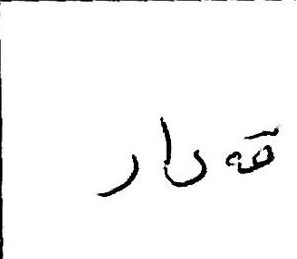 قەدار